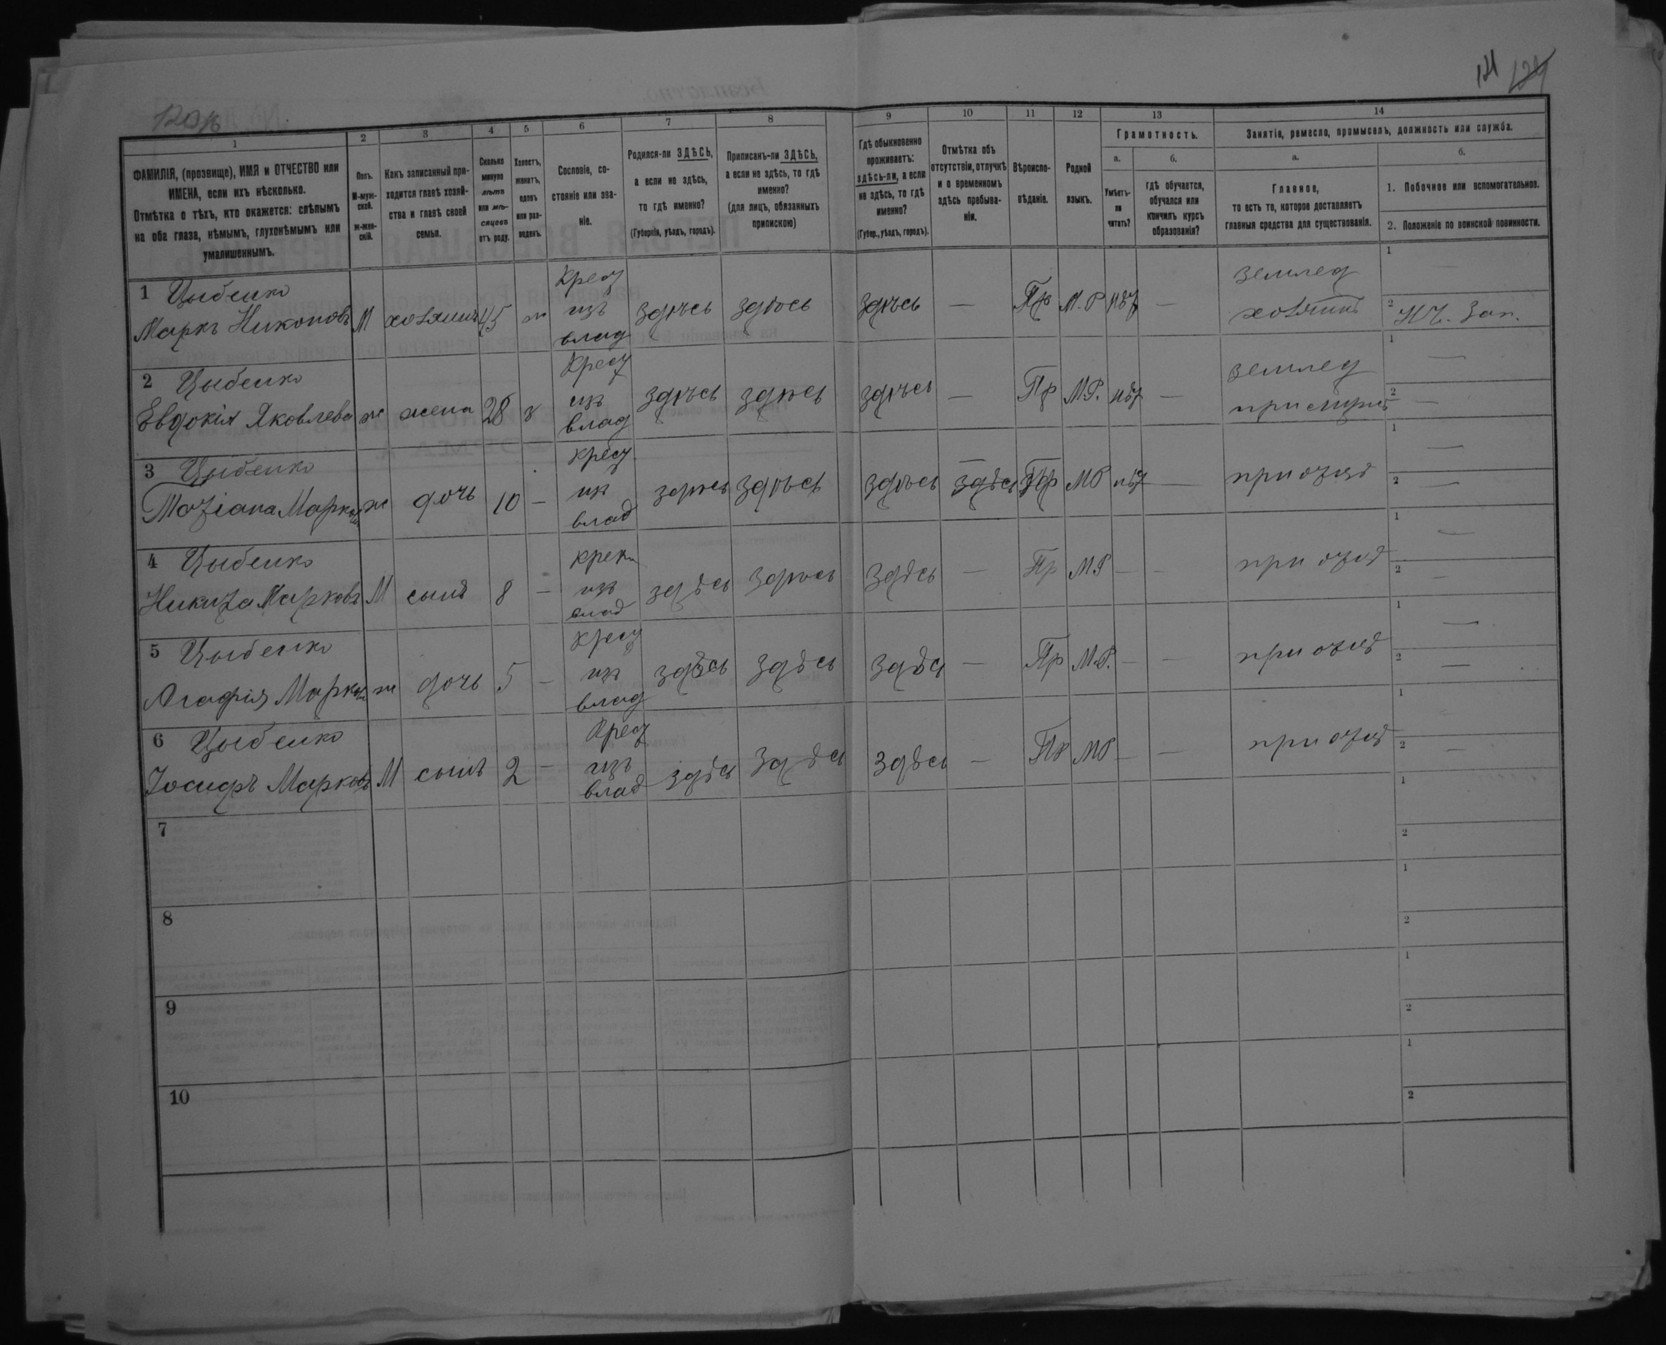 1 2 3 4 5 6 7 8 9 10 11 12 13 14
ФАМИЛІЯ, (прозвище), ИМЯ и ОТЧЕСТВО или
ИМЕНА, если ихъ нѣсколько.
Отмѣтка о тѣхъ, кто окажется: слѣпымъ
на оба глаза, нѣмымъ, глухонѣмымъ или
умалишеннымъ.
Полъ.
М-муж-
ской.
ж-жен-
скій.
Какъ записанный при-
ходится главѣ хозяй-
ства и главѣ своей
семьи.
Сколько
минуло
лѣтъ
или мѣ-
сяцевъ
отъ роду.
Холостъ,
женатъ,
вдовъ
или раз-
веденъ.
Сословіе, со-
стояніе или зва-
ніе.
Родился-ли ЗДѢСЬ,
а если не здѣсь,
то гдѣ именно?
(Губернія, уѣздъ, городъ).
Приписанъ-ли ЗДѢСЬ,
а если не здѣсь, то гдѣ
именно?
(для лицъ, обязанныхъ
припискою)
Гдѣ обыкновенно
проживаетъ:
здѣсь-ли, а если
не здѣсь, то гдѣ
именно?
(Губер., уѣздъ, городъ).
Отмѣтка объ
отсутствіи, отлучкѣ
и о временномъ
здѣсь пребыва-
ніи.
Вѣроиспо-
вѣданіе.
Родной
языкъ.
Грамотность.
а.
Умѣетъ-
ли
читать?
б.
гдѣ обучается,
обучался или
кончилъ курсъ
образованія?
Занятіе, ремесло, промыселъ, должность или служба.
а.
Главное,
то есть то, которое доставляетъ
главныя средства для существованія.
б.
1. Побочное или вспомогательное.
2. Положеніе по воинской повинности.
1 Цыбенко
Маркъ Никоновъ М хозяинъ 45 ж Крест изъ влад здѣсь здѣсь здѣсь — Пр М.Р нѣт — землед хозяинъ
1 —
2 Н.Ч. Зап.
2 Цыбенко
Евдокія Яковлева ж жена 28 з Крест изъ влад здѣсь здѣсь здѣсь — Пр М.Р. нѣт — землед при мужѣ
1 —
2 —
3 Цыбенко
Татіана Маркова ж дочь 10 — крест изъ влад здѣсь здѣсь здѣсь здѣсь Пр МР нѣт — при отцѣ
1 —
2 —
4 Цыбенко
Никита Марковъ М сынъ 8 — крест изъ влад здѣсь здѣсь здѣсь — Пр МР — — при отцѣ
1 —
2 —
5 Цыбенко
Агафія Маркова ж дочь 5 — крест изъ влад здѣсь здѣсь здѣсь — Пр М.Р. — — при отцѣ
1 —
2 —
6 Цыбенко
Іосифъ Марковъ М сынъ 2 — Крест изъ влад здѣсь здѣсь здѣсь — Пр МР — — при отцѣ
1 —
2 —
7
1
2
8
1
2
9
1
2
10
1
2